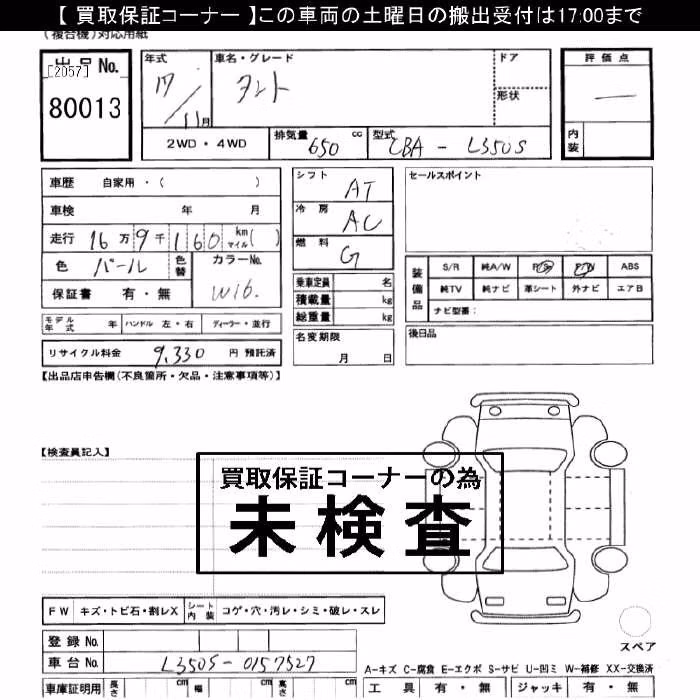 【 買取保証コーナー 】この車両の土曜日の搬出受付は17:00まで
(複合機)対応用紙
出品No.
[2057]
80013
年式
17/11月
車名・グレード
タント
ドア
形状
評価点
—
内装
2WD・4WD
排気量 650 cc
型式 CBA - L350S
車歴 自家用・( )
車検 年 月
走行 16万9千160 km マイル( )
色 パール
色替
カラーNo.
W16.
保証書 有・無
シフト AT
冷房 AC
燃料 G
乗車定員 名
積載量 kg
総重量 kg
セールスポイント
装備品
S/R 純A/W P/S P/W ABS
純TV 純ナビ 革シート 外ナビ エアB
ナビ型番:
モデル年式 年 ハンドル 左・右 ディーラー・並行
名変期限
月 日
後日品
リサイクル料金 9,330 円 預託済
【出品店申告欄(不良箇所・欠品・注意事項等)】
【検査員記入】
買取保証コーナーの為
未検査
FW キズ・トビ石・割レX シート内装 コゲ・穴・汚レ・シミ・破レ・スレ
登録No.
車台No. L350S-0157527
スペア
A-キズ C-腐食 E-エクボ S-サビ U-凹ミ W-補修 XX-交換済
車庫証明用 長さ cm 幅 cm 高さ cm
工具 有・無 ジャッキ 有・無